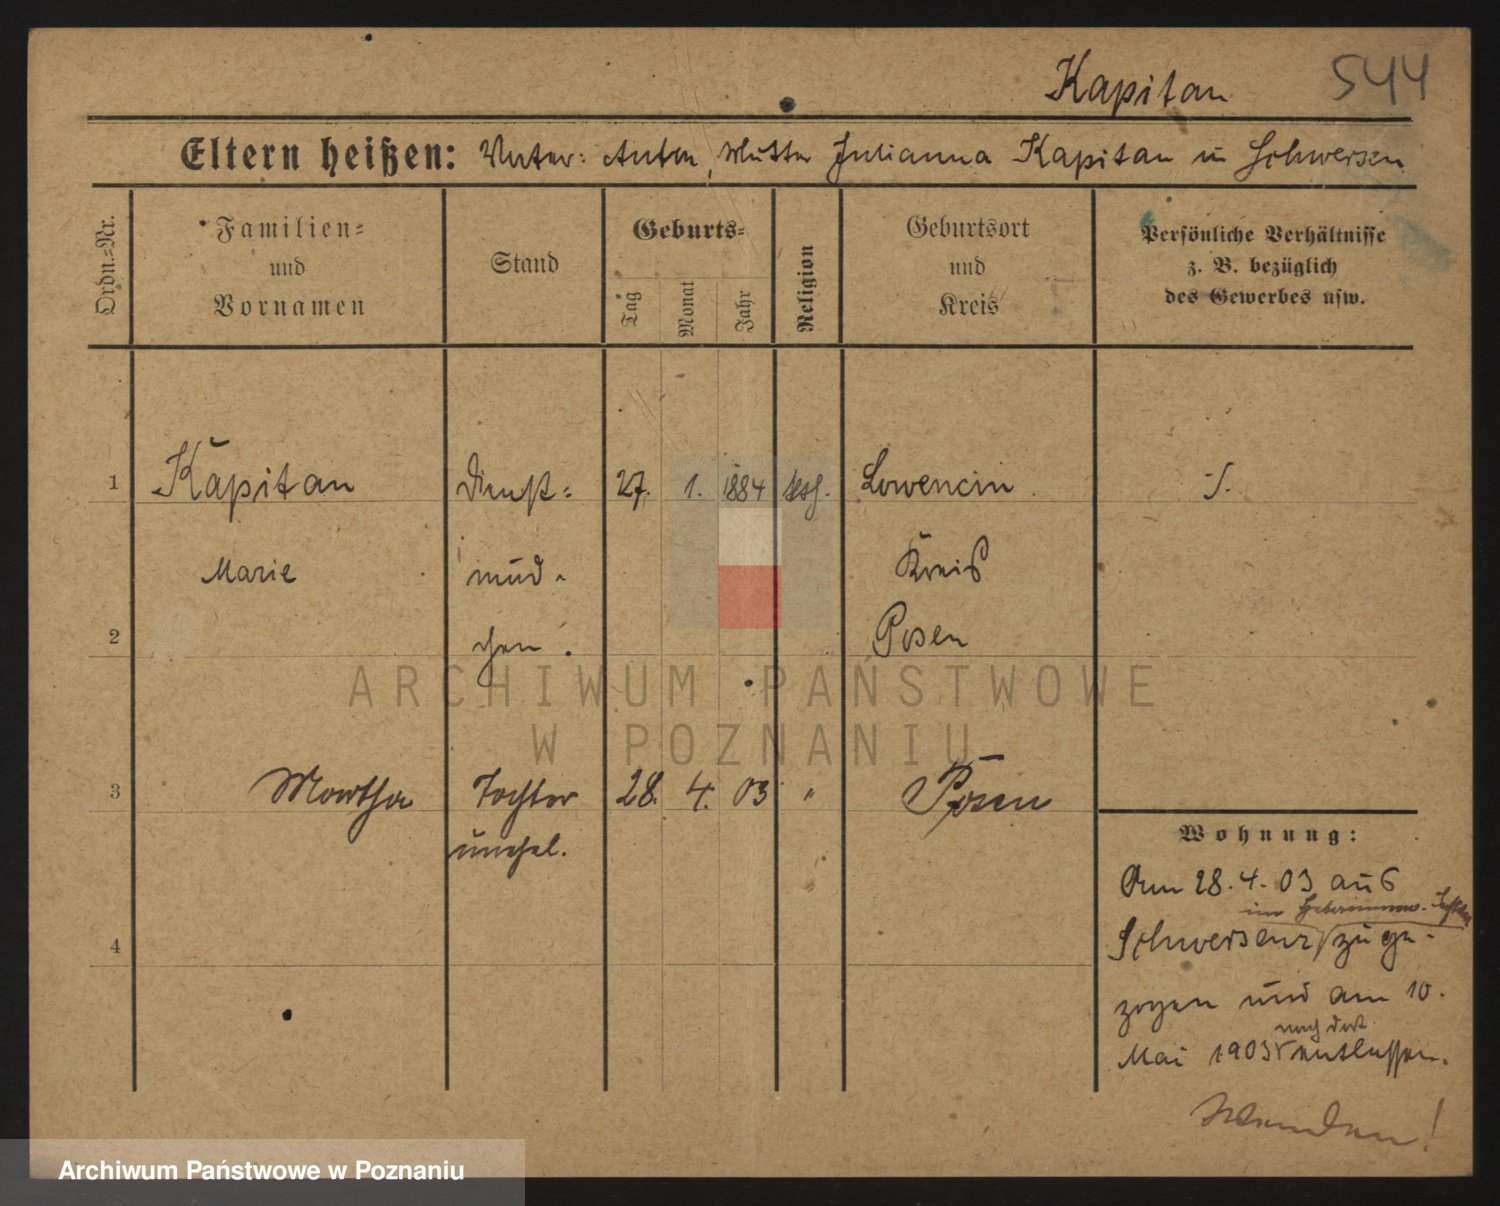 Kapitan 544
Eltern heißen: Vater: Anton, Mutter Julianna Kapitan in Schwersen
Ordn.-Nr.
Familien- und Vornamen
Stand
Geburts-
Tag
Monat
Jahr
Religion
Geburtsort und Kreis
Persönliche Verhältnisse z. B. bezüglich des Gewerbes usw.
1 Kapitan Dienst- 27. 1. 1884 Lowencin
Marie mäd- Kreis
2 chen. Posen
ARCHIWUM PAŃSTWOWE
W POZNANIU
3 Martha Tochter 28. 4. 03 " Posen
unehel.
4
Wohnung:
Am 28. 4. 03 aus
im
Schwersenz zuge-
zogen und am 10.
nach dort
Mai 1903 entlassen.
Wenden!
Archiwum Państwowe w Poznaniu